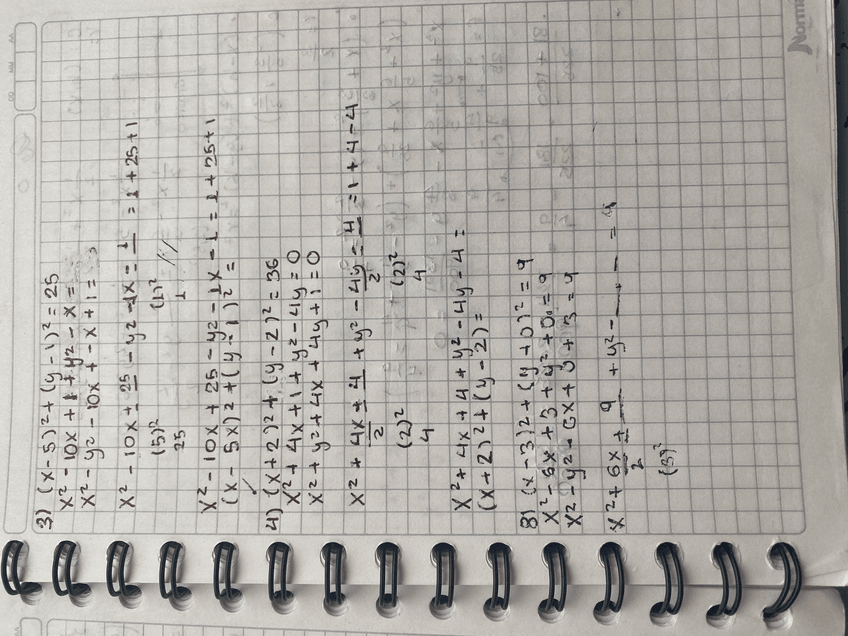 3) (x-5)²+(y-1)²=25
x²-10x+1+y²-x=
x²-y²-10x+-x+1=
x²-10x+25-y²-1x-1=1+25+1
(5)² (1)²
25 1 //
x²-10x+25-y²-1x-1=1+25+1
(x-5x)²+(y-1)²=
4) (x+2)²+(y-2)²=36
x²+4x+1+y²-4y=0
x²+y²+4x+4y+1=0
x²+4x+4+y²-4y-4=1+4-4
2 2
(2)² (2)²
4 4
x²+4x+4+y²-4y-4=
(x+2)²+(y-2)=
8) (x-3)²+(y+0)²=9
x²-6x+3+y²+0=9
x²-y²-6x+3+3=9
x²+6x+9+y²-__-__=9
2
(3)²
Norma